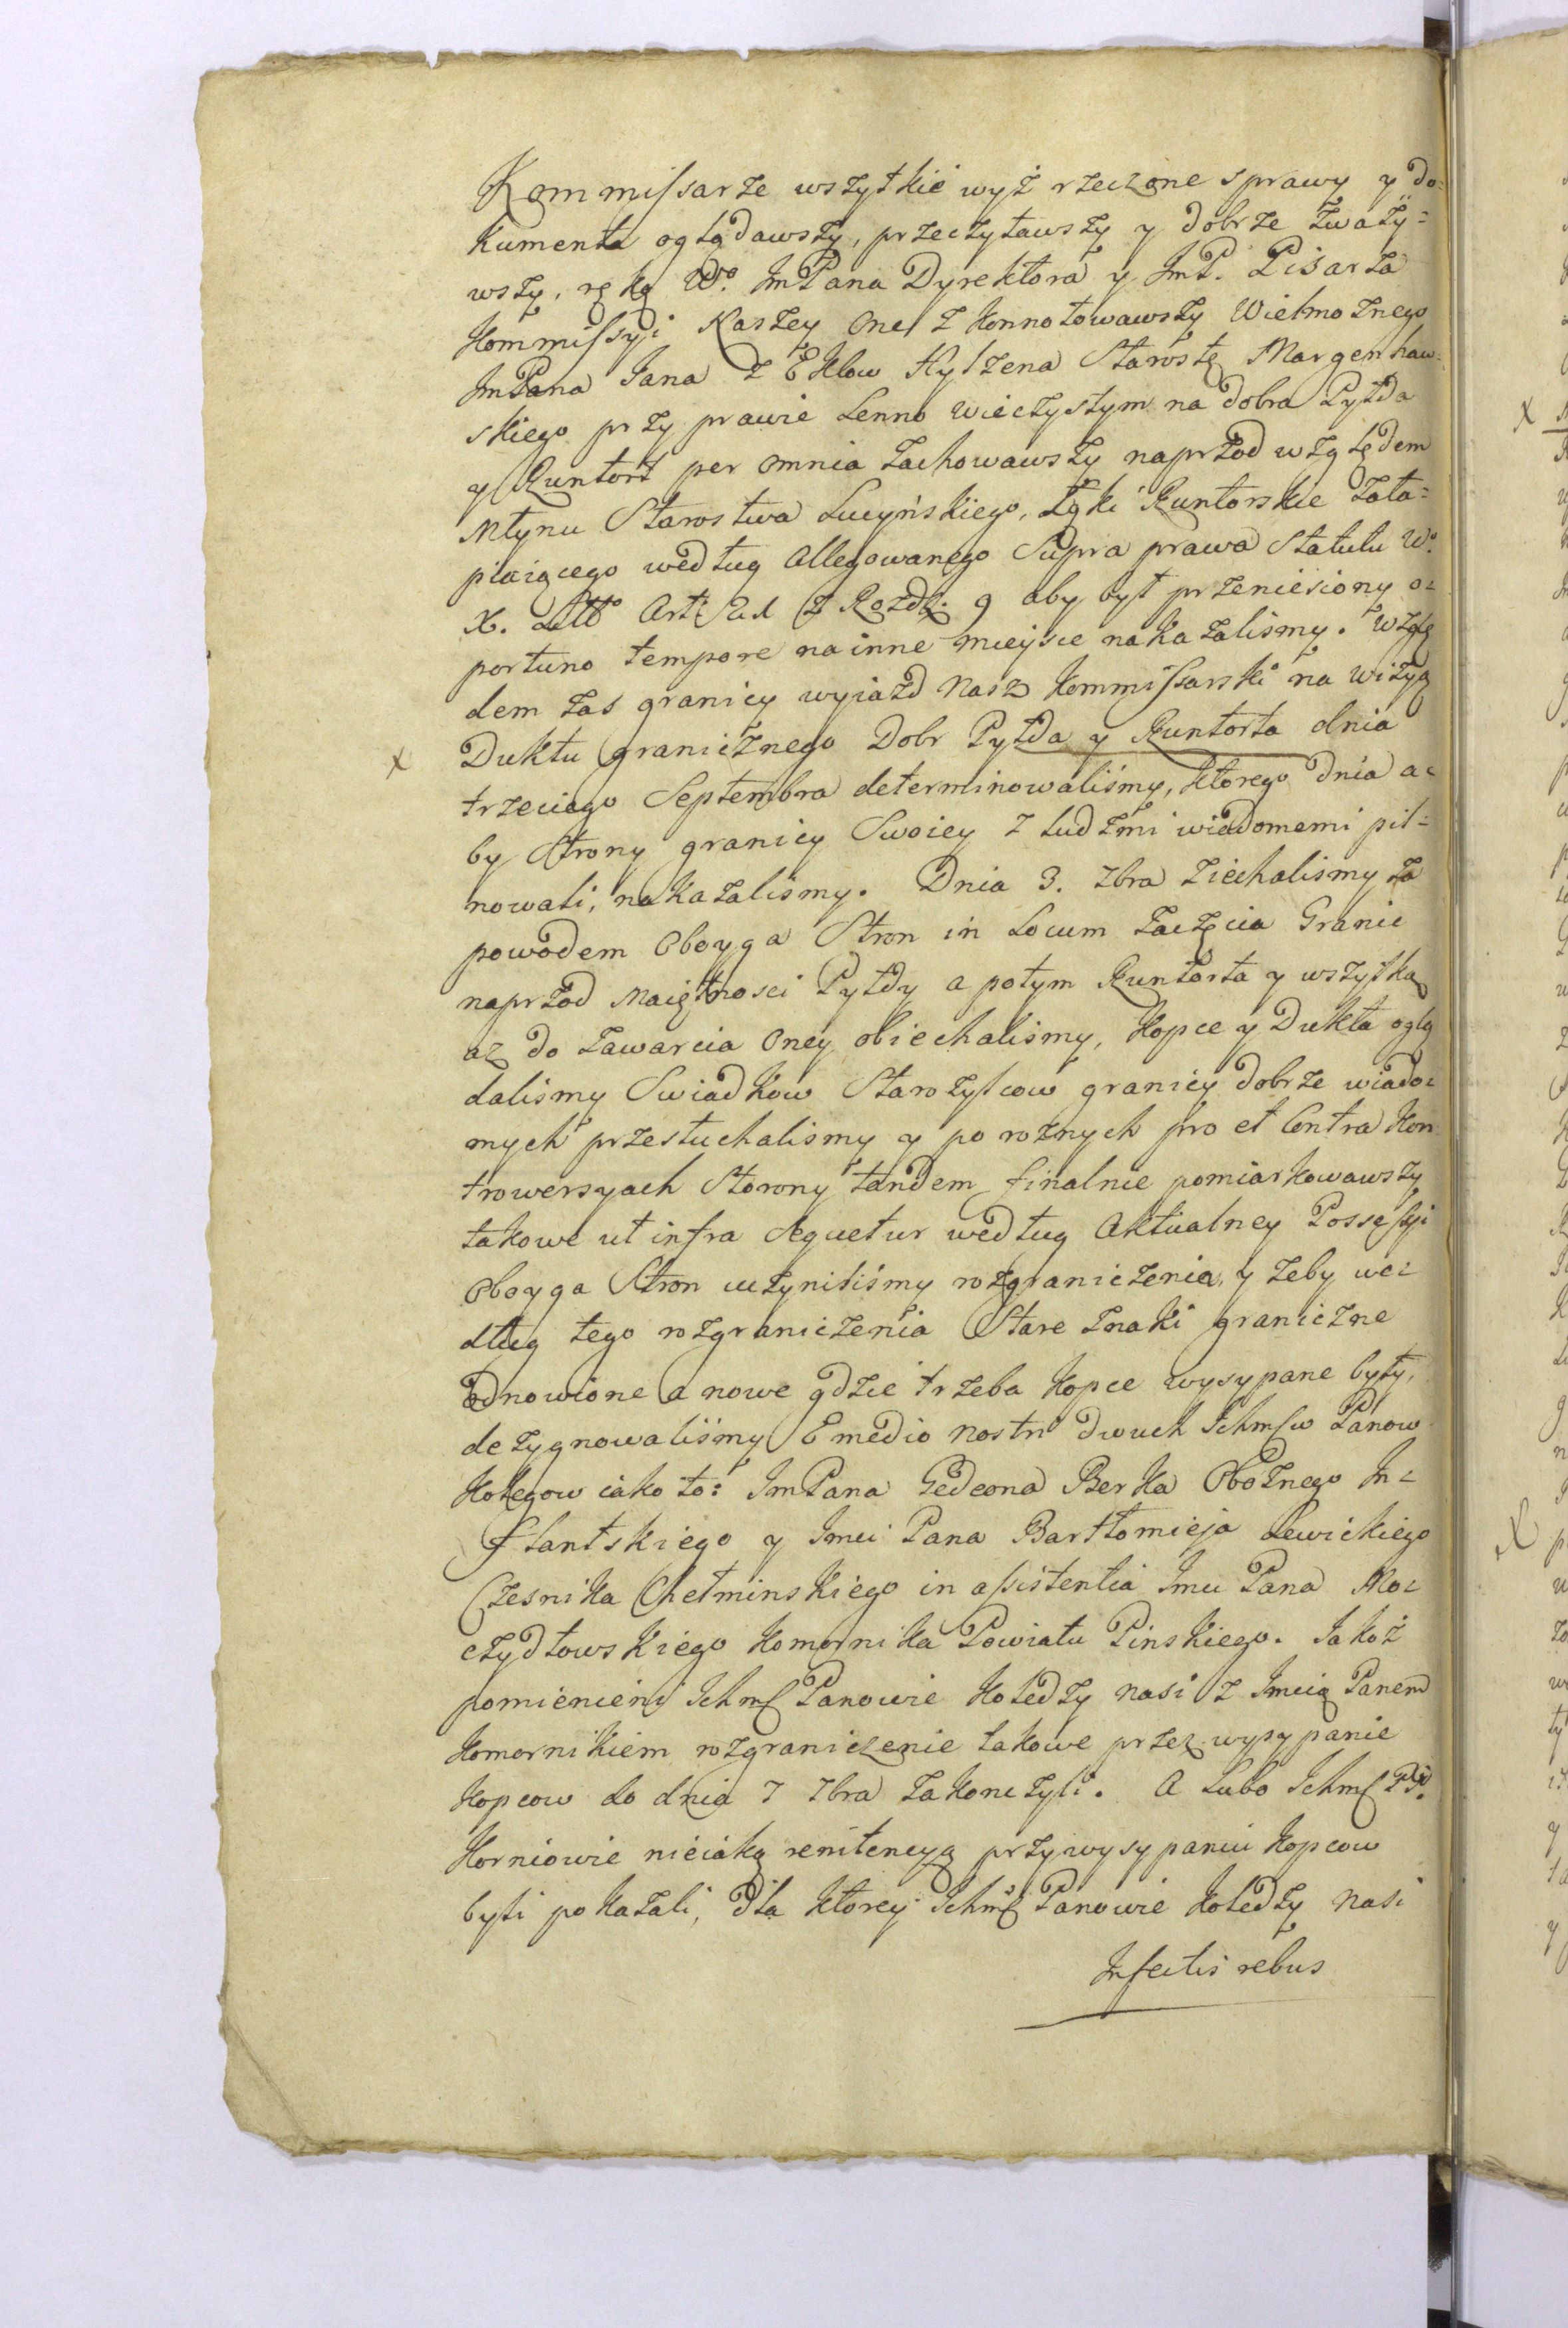 Kommissarze wszytkie wyż rzeczone sprawy y do=
kumenta oglądawszy, przeczytawszy y dobrze zważy=
wszy, ręką Wo. JmPana Dyrektora y JmP. Pisarza
Kommissyi Naszey one z konnotowawszy Wielmożnego
JmPana Jana z Eklow Hylzena Starostę Margenhaw=
skiego przy prawie Lenno wieczystym na dobra Pyłda
y Runtort per omnia zachowawszy naprzod względem
Młynu Starostwa Lucyńskiego, Łąki Runtorskie zata=
piaiącego według allegowanego Supra prawa Statutu Wo.
X. Litto Art: 21 z Rozdz: 9 aby był przeniesiony o=
portuno tempore na inne mieysce nakazalismy. Wzglę
dem zas granicy wyiazd nasz kommissarski na wizyą
x Duktu granicznego Dobr Pyłda y Runtorta dnia
trzeciego Septembra determinowaliśmy, ktorego dnia a=
by Strony granicy Swoiey z ludźmi wiadomemi pil=
nowali, nakazalismy. Dnia 3. 7bra ziechalismy za
powodem Oboyga Stron in Locum zaczęcia Granic
naprzod Maiętnosci Pyłdy a potym Runtorta y wszytką
az do zawarcia Oney obiechalismy, Kopce y Dukta oglą
dalismy Swiadkow Starożytcow granicy dobrze wiado=
mych przesłuchalismy y po rożnych pro et Contra Kon
trowersyach Storony tandem finalnie pomiarkowawszy
takowe ut infra Sequetur według Aktualney Possessyi
Oboyga Stron uczyniliśmy rozgraniczenia, y zeby we=
dług tego rozgraniczenia Stare znaki graniczne
Odnowione a nowe gdzie trzeba kopce wysypane były,
dezygnowaliśmy E medio nostri dwuch Ichmsw Panow
Kolegow iako to: JmPana Gedeona Berka Obożnego In=
flantskiego y Jmci Pana Bartłomieja Lewickiego
Czesnika Chełminskiego in assistentia Jmci Pana Mo=
czydłowskiego Komornika Powiatu Pinskiego. Jakoż
pomienieni Ichms Panowie Koledzy nasi z Jmcią Panem
Komornikiem rozgraniczenie takowe przez wysypanie
Kopcow do dnia 7 7bra zakonczyli. A Lubo Ichms PP.
Korniowie nieiaką renitencyą przy wysypaniu Kopcow
byli pokazali, dla ktorey Ichms Panowie Koledzy nasi
Infectis rebus